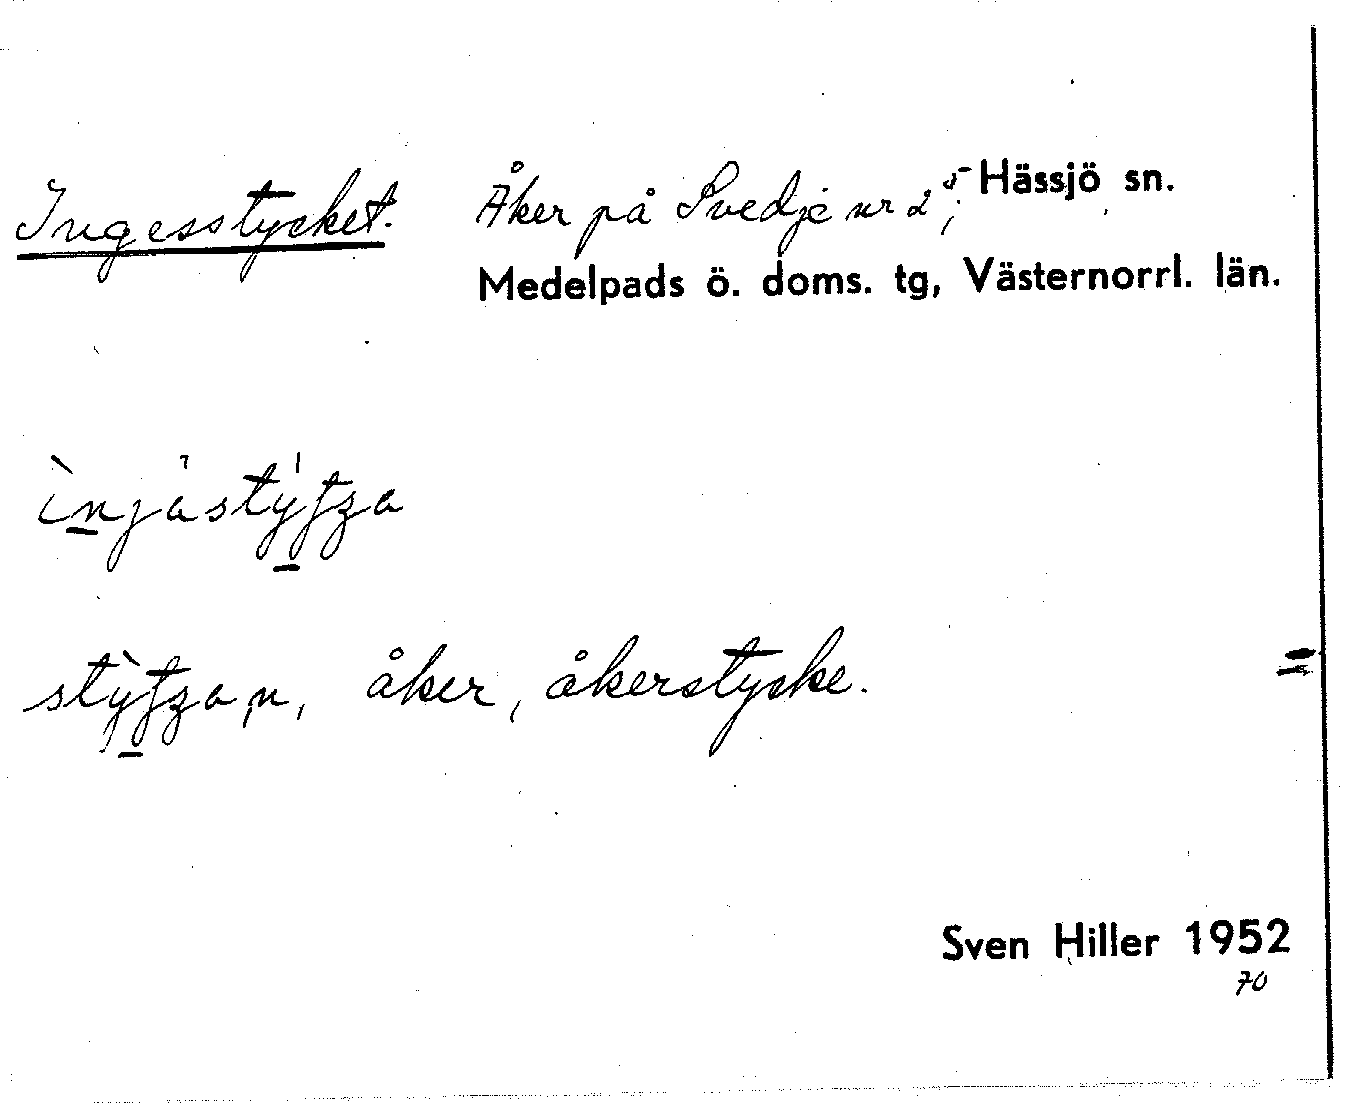 Ingesstycket. Åker på Svedje nr 2⁵; Hässjö sn.
Medelpads ö. doms. tg, Västernorrl. län.
åker, åkerstycke.
Sven Hiller 1952
70